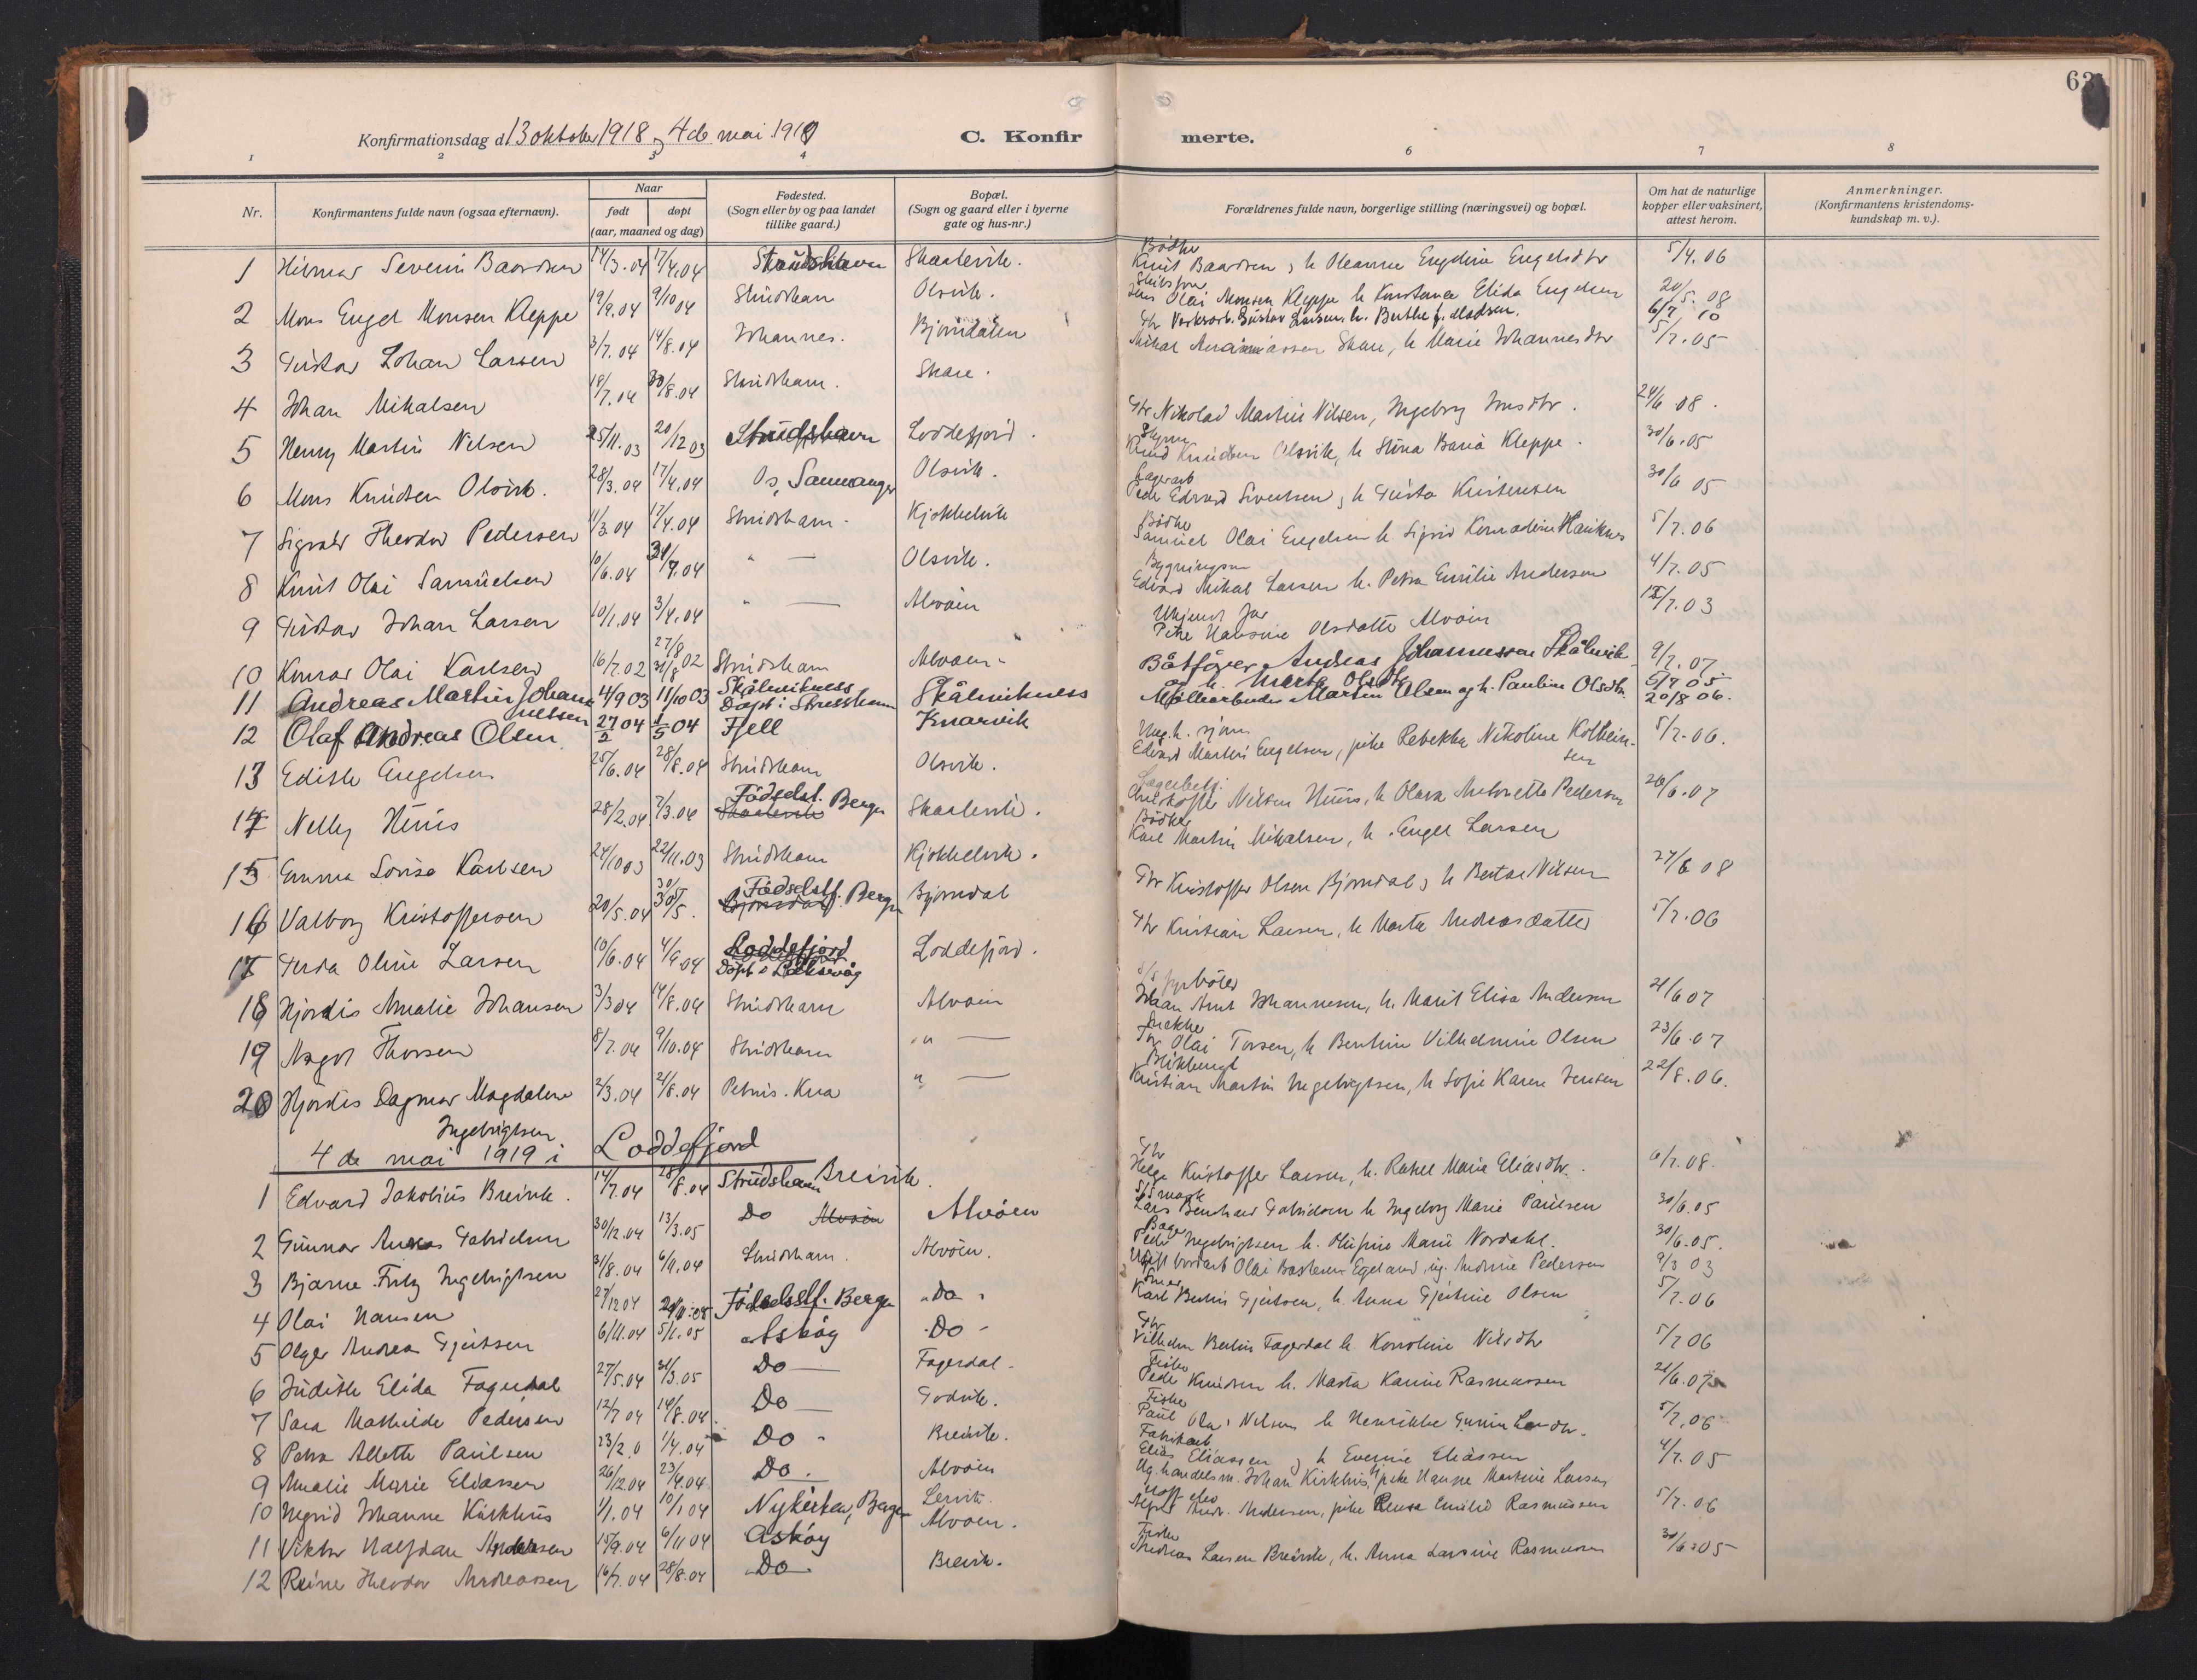 63
Konfirmationsdag d. 13 oktober 1918 og 4de mai 1919
C. Konfirmerte.
1 2 3 4 6 7 8
Nr.
Konfirmantens fulde navn (ogsaa efternavn).
Naar
født
døpt
(aar, maaned og dag)
Fødested.
(Sogn eller by og paa landet
tillike gaard.)
Bopæl.
(Sogn og gaard eller i byerne
gate og hus-nr.)
Forældrenes fulde navn, borgerlige stilling (næringsvei) og bopæl.
Om hat de naturlige
kopper eller vaksinert,
attest herom.
Anmerkninger.
(Konfirmantens kristendoms-
kundskap m. v.).
1 Hilmar Severin Baardsen 14/3.04 17/4.04 Strudshavn Skaalevik. Bødker Knut Baardsen, h Oleanna Engeline Engelsdtr 5/4.06
2 Mons Engel Monsen Kleppe 19/9.04 9/10 04 Strudshavn Olsvik. Jens Olai Monsen Kleppe h Konstance Elida Engelsen 20/5.08
3 Gustav Johan Larsen 3/7.04 14/8.04 Johannes. Bjørndalen Gbr Verksarb. Gustav Larsen h. Berthe J. Madsen. 6/7 10
4 Johan Mikalsen 18/7.04 30/8.04 Strudshavn. Skare. Mikal Skare, h Marie Johannesdtr 5/7.05
5 Henry Martin Nilsen 25/11.03 20/12 03 Strudshavn Loddefjord. Gbr Nikolai Martin Nilsen, Ingeborg Jensdtr. 24/6 08.
6 Mons Knudsen Olsvik. 28/3.04 17/4.04 Os, Samnanger Olsvik. Knud Knudsen Olsvik, h Stina Kleppe. 30/6.05
7 Sigvald Theodor Pedersen 11/3 04 17/4.04 Strudshavn. Kjøkkelvik Lagerarb Peder Edvard Sivertsen, h Gusta Kristensen 30/6 05
8 Knut Olai Samuelsen 10/6.04 31/7.04 " — Olsvik. Bødker Samuel Olai Engelsen h. Sigrid Konradine Hauknes 5/7.06
9 Gustav Johan Larsen 10/1.04 3/4.04 " — Alvøen Edvard Mikal Larsen h. Petra Emilie Andersen 4/7.05
10 Konrad Olai Karlsen 16/7.02 27/8 02 31/8 Strudshavn Alvøen Ukjendt far Pike Hansine Olsdatter Alvøen 12/7.03
11 Andreas Martin Johannessen 4/9 03 11/10 03 Skålevikness Døpt i Strusshavn Skålevikness Båtfører Andreas Johannessen Skålevik og h. Marta Olsdtr 9/7.07
12 Olaf Andreas Olsen 27/2 04 1/5 04 Fjell Knarvik Møllearbeider Martin Olsen og h. Pauline Olsdtr. 5/7 05 20/8 06.
13 Edith Engelsen 25/6.04 28/8.04 Strudshavn Olsvik. Ung. k. sjøm Edvard Martin Engelsen, pike Rebekka Nikoline Kolbein-sen 5/7-06.
14 Nelly Huus 28/2.04 7/3.04 Fødselst. Bergen Skaalevik Skaalevik. Kristoffer Nilsen Huus, h Olava Antonette Pedersen 26/6.07
15 Emma Lovise Karlsen 24/10 03 22/11.03 Strudshavn Kjøkkelvik. Bødker Karl Martin Mikalsen, h. Engel Larsen
16 Valborg Kristoffersen 20/5.04 30/5. Fødselsst. Bergen Bjørndal Bjørndal Gbr Kristoffer Olsen Bjørndal, h Berta Nilsen 27/6 08
17 Gerda Oline Larsen 10/6.04 4/9 04 Loddefjord Døpt i Laksevåg Loddefjord. Gbr Kristian Larsen, h Marta Andreasdatter 5/7.06
18 Hjørdis Amalie Johansen 3/3 04 14/8.04 Strudshavn Alvøen S/S fyrbøter Johan Arnt Johannesen, h. Marit Elisa Andersen 21/6 07
19 Margot Thorsen 8/7.04 9/10.04 Strudshavn " — Snekker Olai Torsen, h Bentine Vilhelmine Olsen 23/6.07
20 Hjørdis Dagmar Magdalene Ingebrigtsen 2/3.04 21/8.04 Petrus. Kra " — Kristian Martin Ingebrigtsen, h Sofie Karen Jensen 22/8.06.
4de mai 1919 i Loddefjord
1 Edvard Jakobius Breivik. 14/7.04 28/8.04 Strudshavn Breivik. Gbr Helge Kristoffer Larsen, h. Rakel Marie Eliasdtr. 6/7.08.
2 Gunnar Andreas Gabrielsen 30/12.04 13/3.05 Do Alvøen Alvøen Lars Bernhard Gabrielsen h Ingeborg Marie Paulsen 30/6.05
3 Bjarne Fritz Ingebrigtsen 31/8.04 6/9.04 Strudshavn. Alvøen. Bager Peder Ingebrigtsen h. Olufine Marie Nordahl. 30/6.05.
4 Olai Hansen 27/12 04 Fødselsst. Bergen " Do " Olai Bastesen Egeland, ug. Andrine Pedersen 9/3 03
5 Olger Andrea Gjertsen 6/11.04 5/1.05 Askøy Do - Karl Bertin Gjertsen, h. Anna Gjertine Olsen 5/7.06
6 Judith Elida Fagerdal 27/5.04 31/3.05 Do — Fagerdal - Gbr Vilhelm Bertin Fagerdal h. Nilsdtr 5/7 06
7 Sara Mathilde Pedersen 12/7 04 14/8.04. Do — Godvik. Fisker Peder Knudsen h. Marta Karine Rasmussen 21/6.07
8 Petra Alette Paulsen 23/2.0 1/4.04 Do - Breivik. Fisker Paul Olai Nilsen h Henrikke 5/7.06
9 Amalie Marie Eliassen 26/12.04 23/4.04 Do. Alvøen Fabrikarb Elias Eliassen, h Eliassen 4/7.05
10 Ingrid Johanne Kirkhus 1/1.04 10/1 04 Nykirken, Bergen Ug. handelsm. Johan Kirkhus, pike Hanne Martine Larsen
11 Viktor Halfdan Andersen 15/9.04 6/11 04 Askøy Alvøen. Alfred Andr. Andersen, pike Emilie Rasmussen 5/7.06
12 Reine Theodor Andreassen 16/7.04 28/8.04 Do Breivik. Fisker Andreas Larsen Breivik, h. Anna Larsine Rasmussen 30/6 05